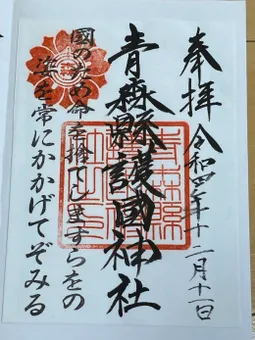 奉拝
令和四年十二月十一日
青森縣護國神社
國のため命を捨てしますらをの
姿を常にかかげてぞみる